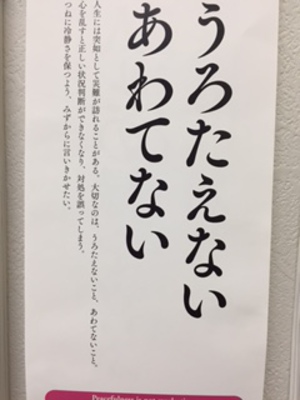 うろたえない
あわてない
人生には突如として災難が訪れることがある。大切なのは、うろたえないこと、あわてないこと。
心を乱すと正しい状況判断ができなくなり、対処を誤ってしまう。
つねに冷静さを保つよう、みずからに言いきかせたい。
Peacefulness is not